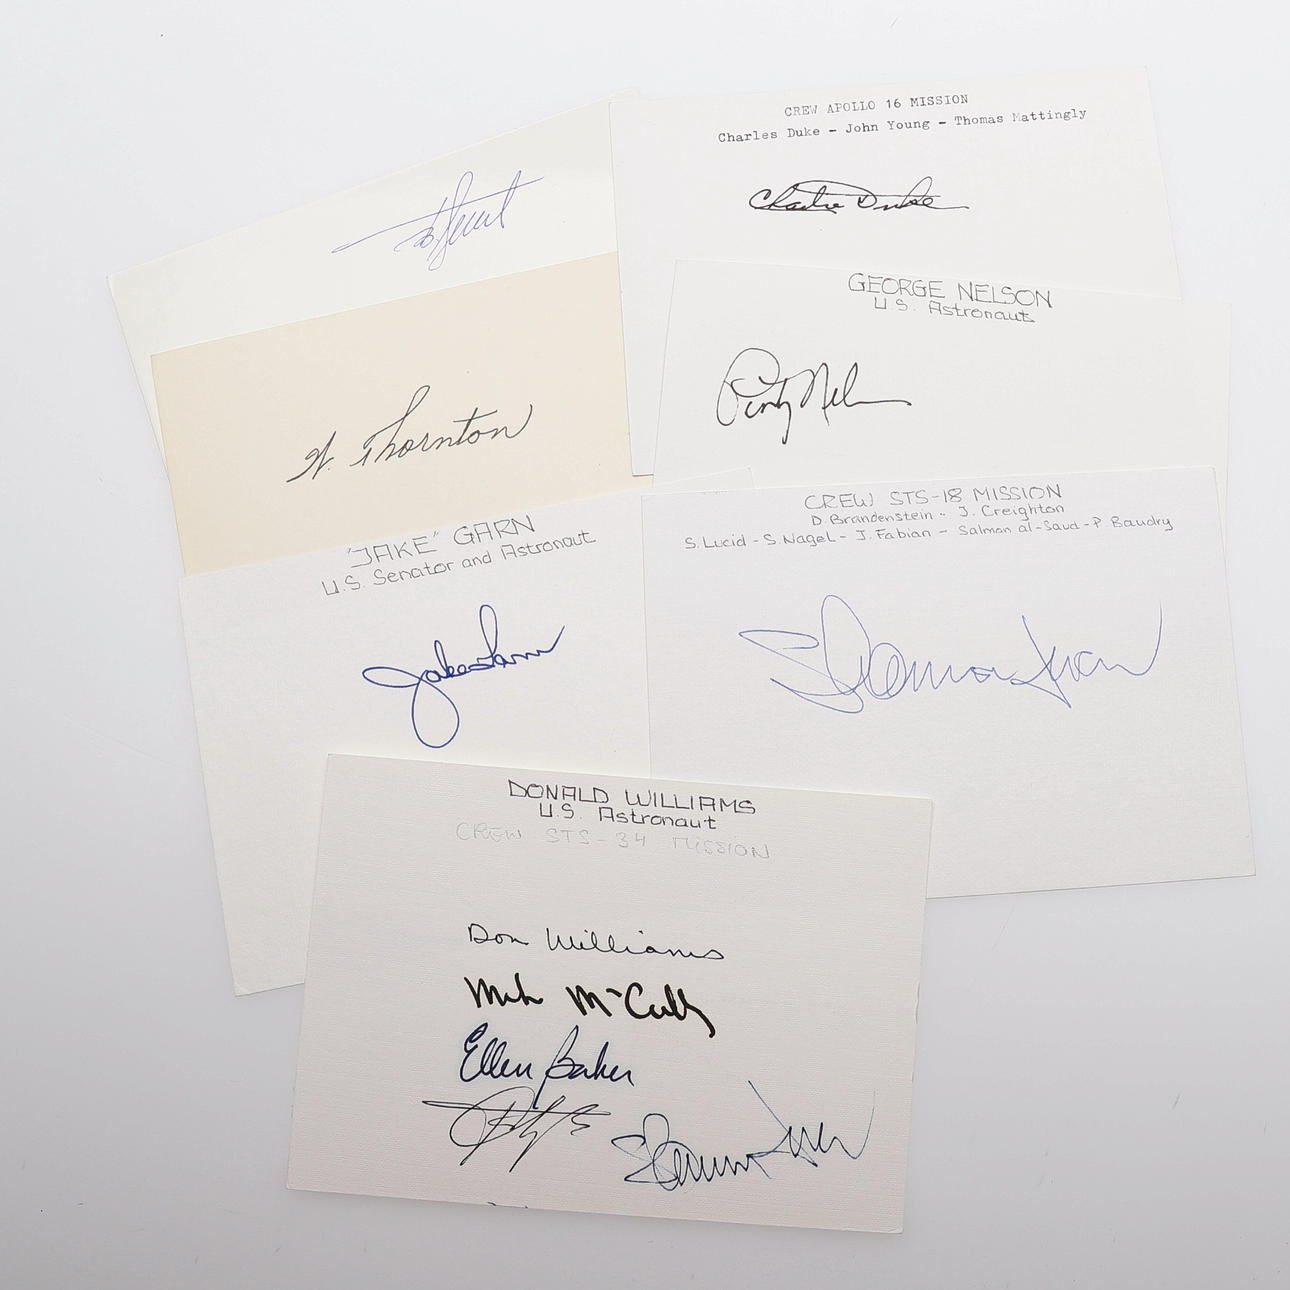 CREW APOLLO 16 MISSION
Charles Duke - John Young - Thomas Mattingly
Charlie Duke
GEORGE NELSON
U.S. Astronaut
Pinky Nelson
W. Thornton
"JAKE" GARN
U.S. Senator and Astronaut
Jake Garn
CREW STS-18 MISSION
D. Brandenstein - J. Creighton
S. Lucid - S. Nagel - J. Fabian - Salman al-Saud - P. Baudry
Shannon Lucid
DONALD WILLIAMS
U.S. Astronaut
CREW STS-34 MISSION
Don Williams
Mike McCully
Ellen Baker
Shannon Lucid